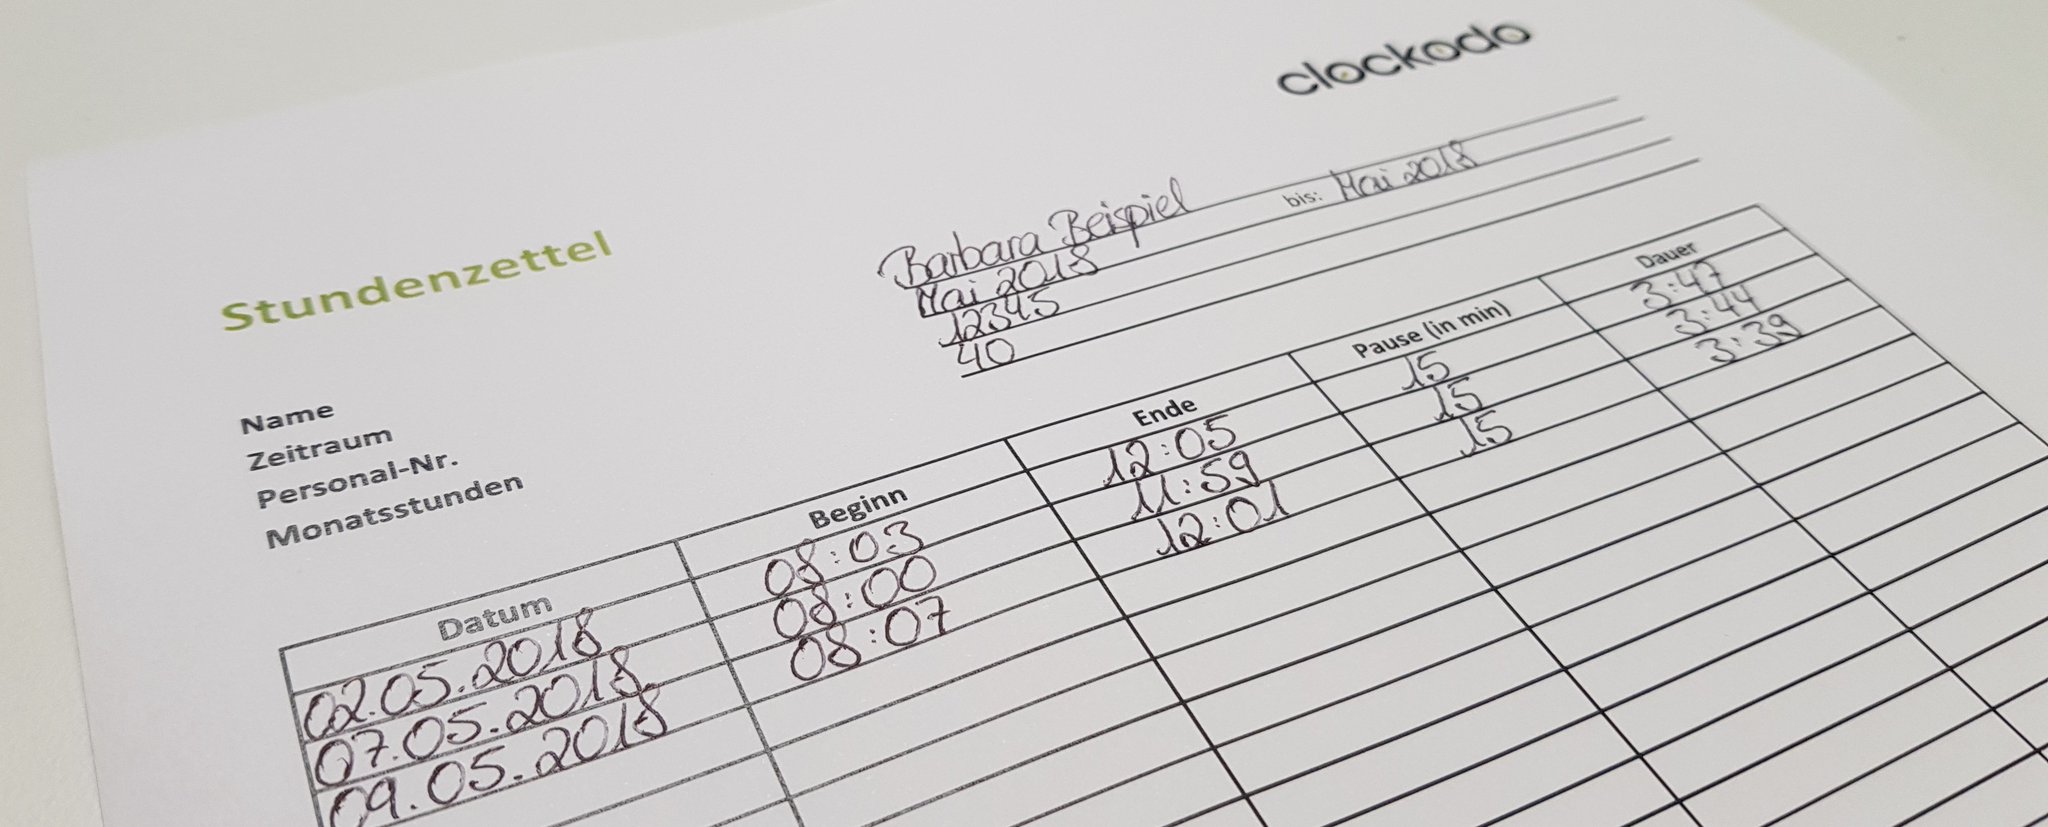 clockodo
Stundenzettel
Name Barbara Beispiel
Zeitraum Mai 2018 bis: Mai 2018
Personal-Nr. 12345
Monatsstunden 40
Datum Beginn Ende Pause (in min) Dauer
02.05.2018 08:03 12:05 15 3:47
07.05.2018 08:00 11:59 15 3:44
09.05.2018 08:07 12:01 15 3:39